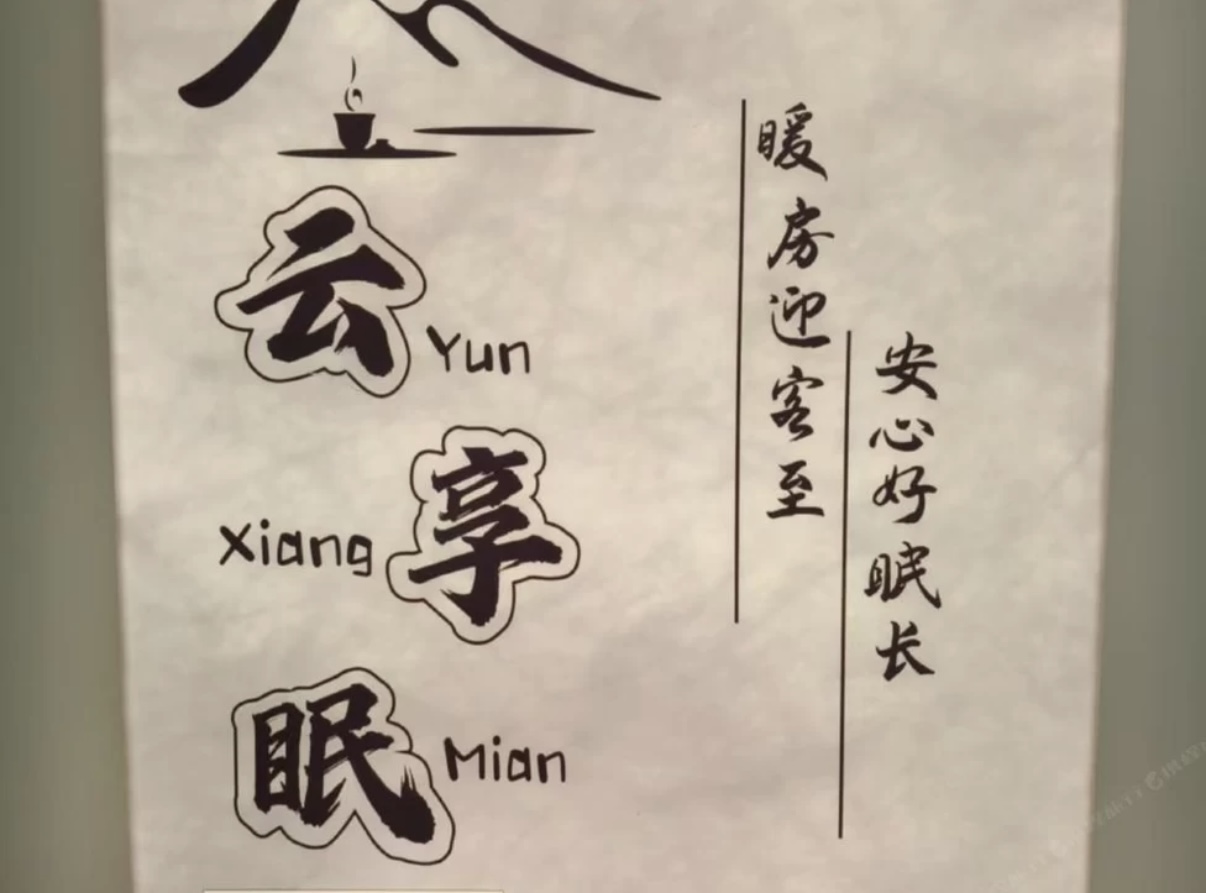 云 Yun
Xiang 享
眠 Mian
暖房迎客至
安心好眠长